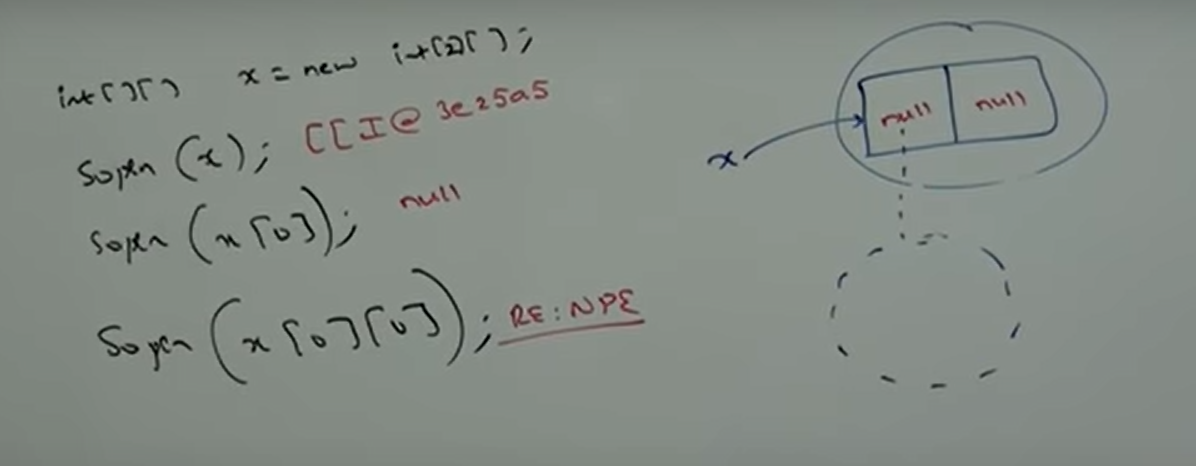 int[][] x = new int[2][];
Sopln (x); [[I@3e25a5
Sopln (x[0]); null
Sopln (x[0][0]); RE:NPE
x
null null